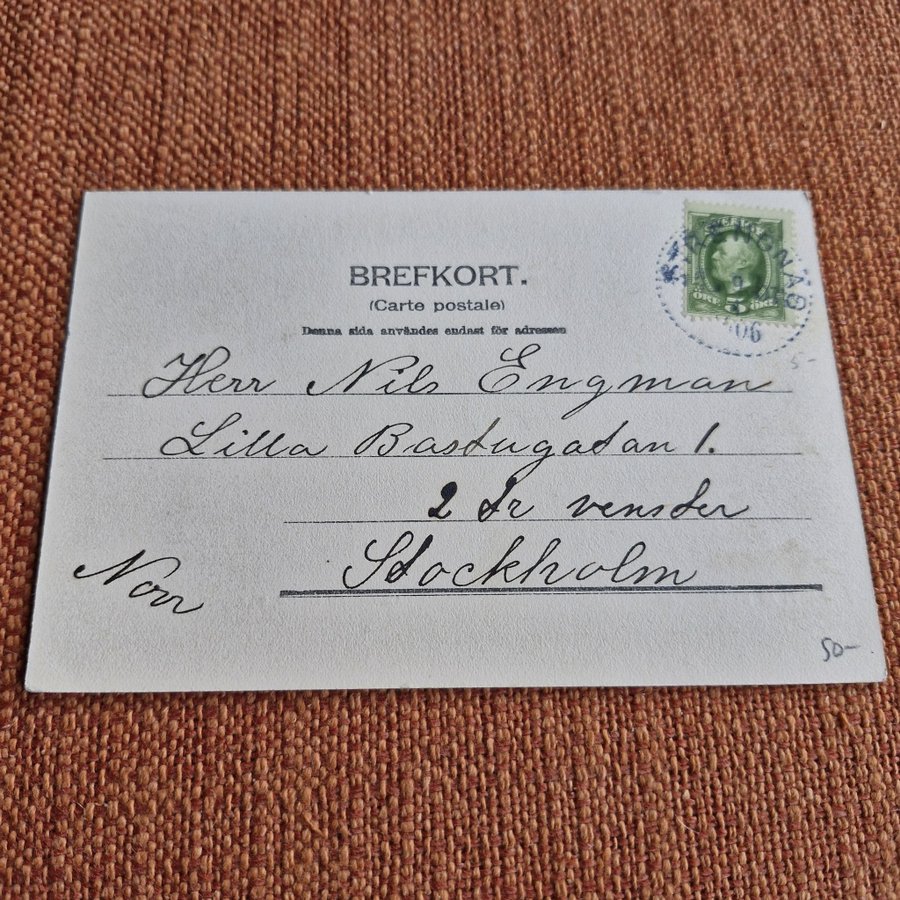 BREFKORT.
(Carte postale)
Denna sida användes endast för adressen
SVERIGE
ÖRE 5 ÖRE
06
5-
Herr Nils Engman
Lilla Bastugatan 1.
2 tr venster
Stockholm
Norr
50-